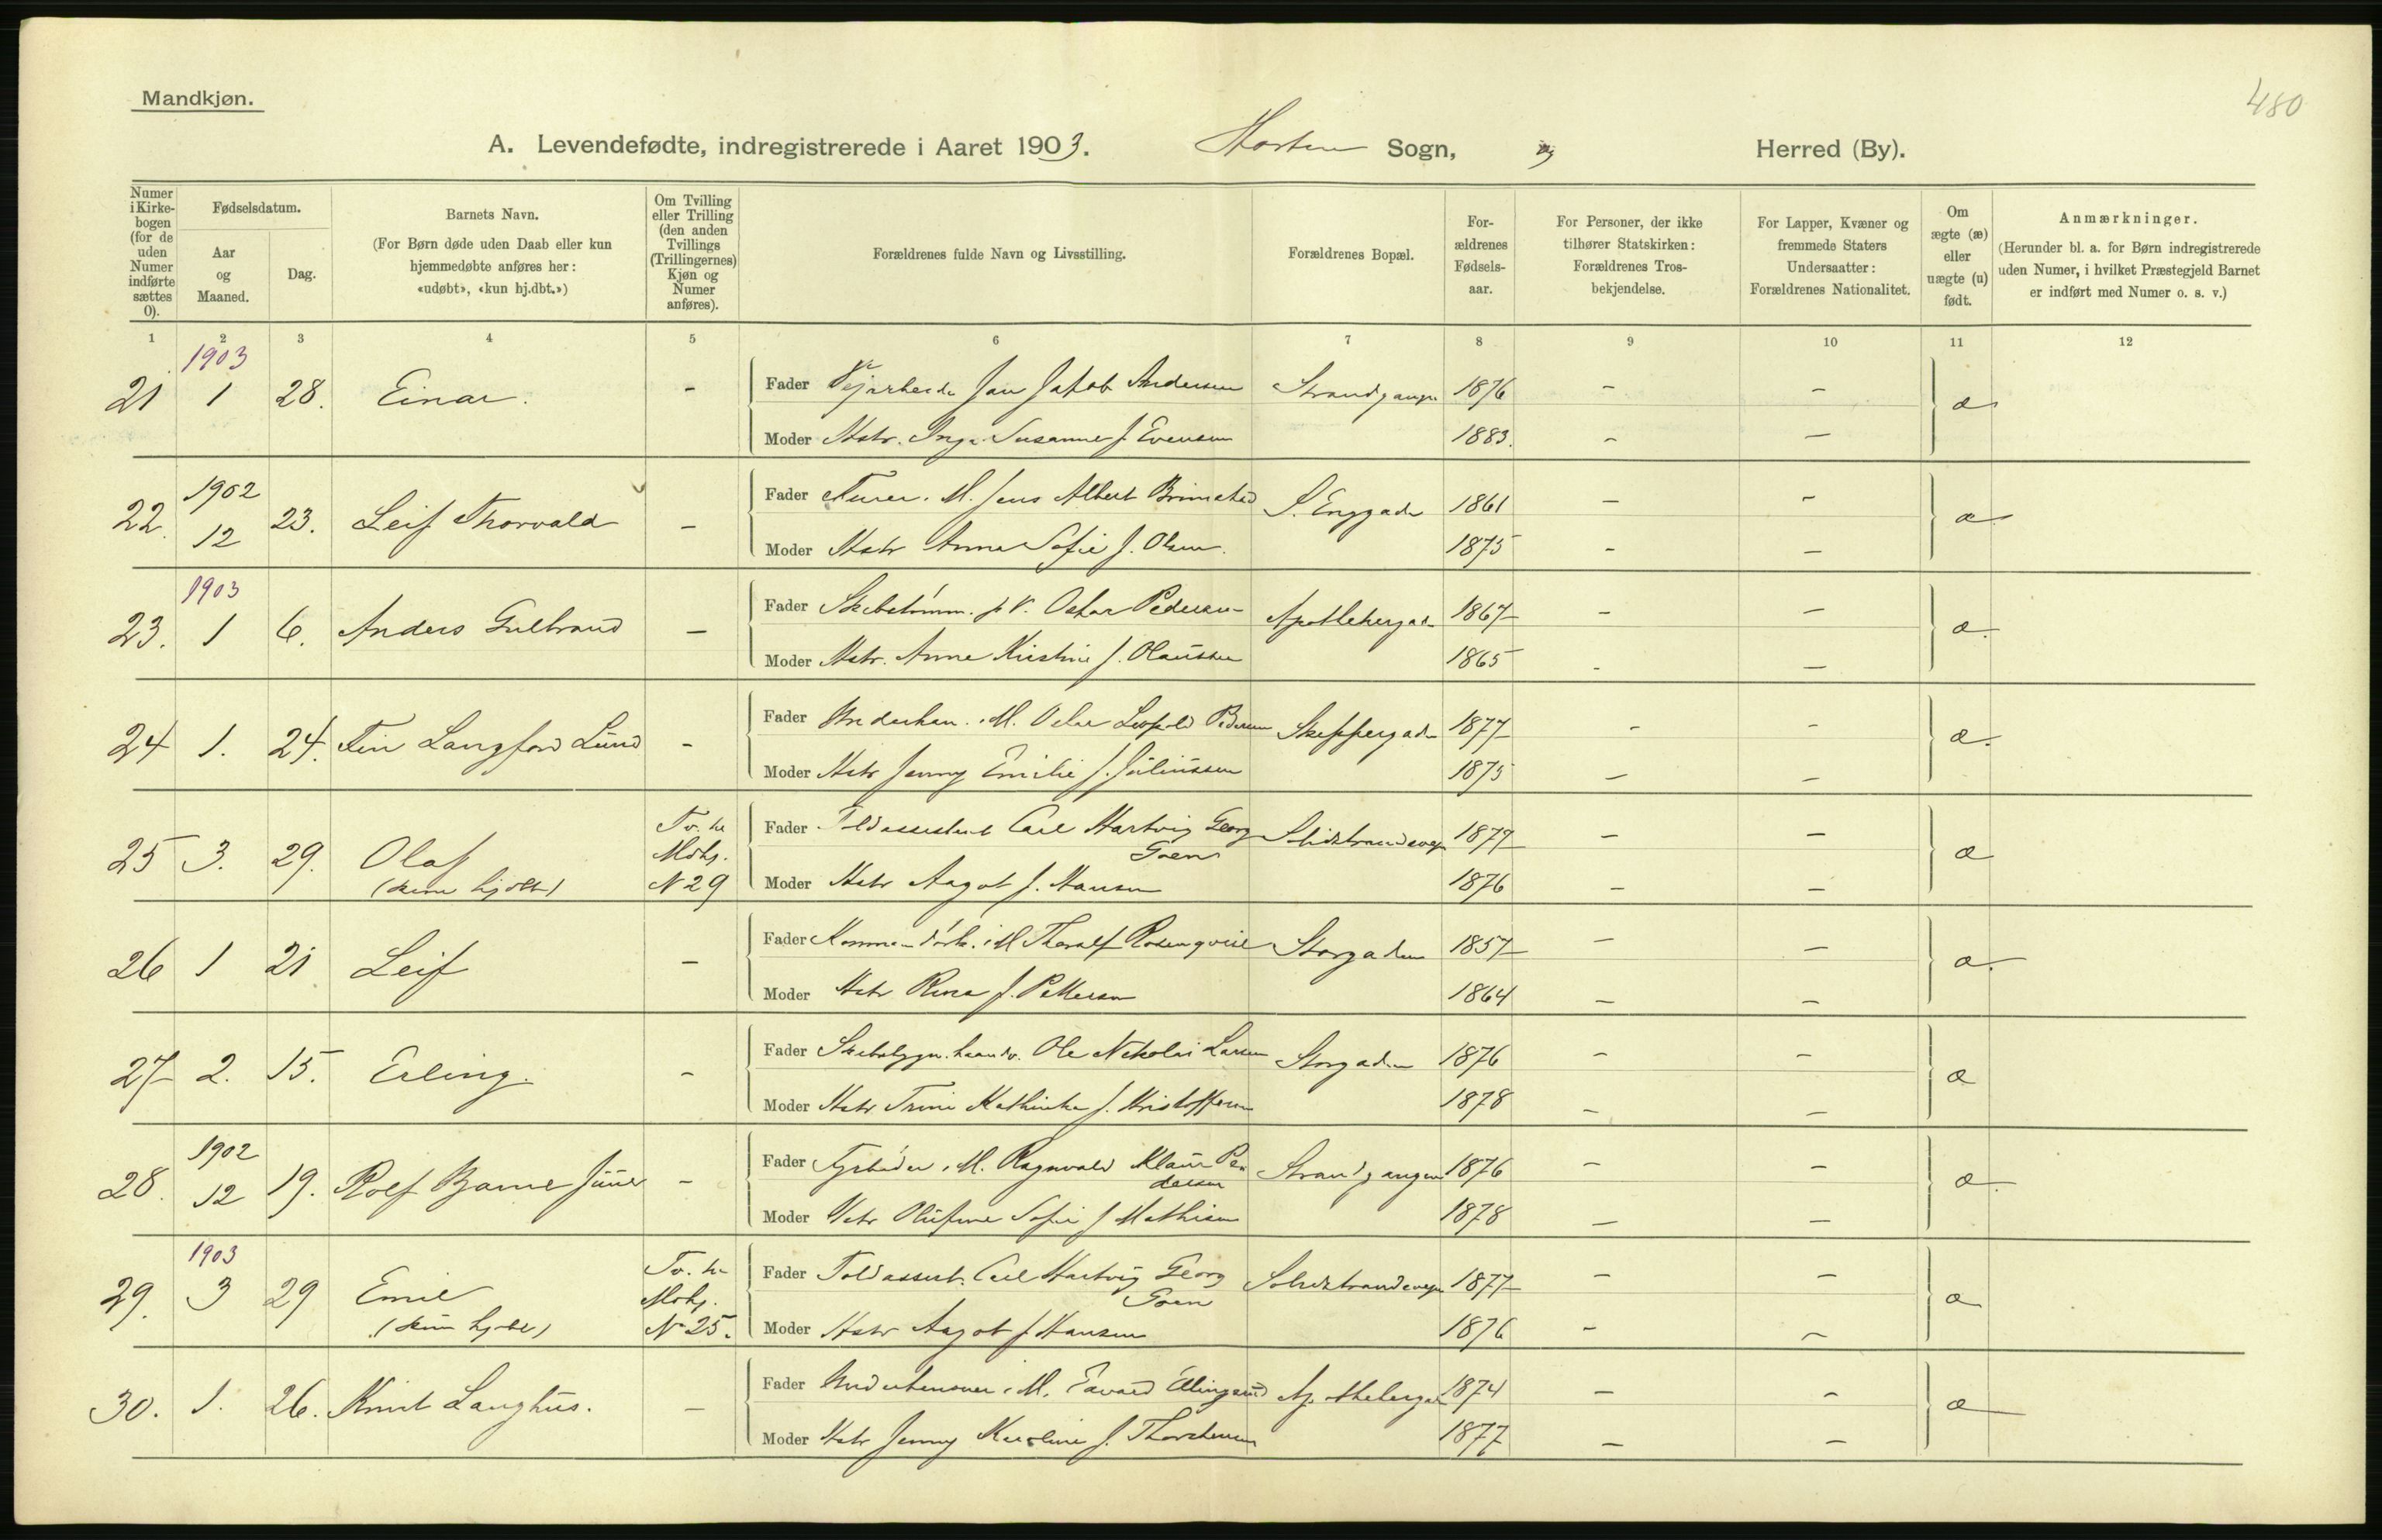 Mandkjøn.
480
A. Levendefødte, indregistrerede i Aaret 1903. Horten Sogn, Herred (By).
Numer i Kirkebogen (for de uden Numer indførte sættes 0).
Fødselsdatum.
Aar og Maaned.
Dag.
Barnets Navn.
(For Børn døde uden Daab eller kun hjemmedøbte anføres her: «udøbt», «kun hj.dbt.»)
Om Tvilling eller Trilling (den anden Tvillings (Trillingernes) Kjøn og Numer anføres).
Forældrenes fulde Navn og Livsstilling.
Forældrenes Bopæl.
Forældrenes Fødselsaar.
For Personer, der ikke tilhører Statskirken: Forældrenes Trosbekjendelse.
For Lapper, Kvæner og fremmede Staters Undersaatter: Forældrenes Nationalitet.
Om ægte (æ) eller uægte (u) født.
Anmærkninger.
(Herunder bl. a. for Børn indregistrerede uden Numer, i hvilket Præstegjeld Barnet er indført med Numer o. s. v.)
1 2 3 4 5 6 7 8 9 10 11 12
1903
21 1 28. Einar. - Fader Jan Jakob Andersen Strandgangen 1876 - - æ
Moder Hstr. Inga Susanne f. Evensen 1883. - -
1902
22. 12 23. Leif Thorvald - Fader M. Jens Albert S. Enggade 1861 - - æ
Moder Hstr Anna Sofie f. Olsen. 1875 - -
1903
23. 1 6. Anders Gulbrand - Fader Skibstømm. p V. Oskar Pedersen Apothekergad 1867 - - æ.
Moder Hstr. Anne Kirstine f. Olaussen 1865 - -
24 1. 24. Fin Langford Lund - Fader Underkan. i M. Oskar Leopold Pedersen Skippergaden 1877 - - æ.
Moder Hstr Jenny Emilie f. Juliussen 1875 - -
25 3. 29. Olaf Tv. til Mdkj. Fader Toldassistent Carl Hartvig Georg Solistrandsvejen 1877 - - æ
Goen
(kun hjdbt) N 29 Moder Hstr Aagot f. Hansen 1876 - -
26 1 21 Leif - Fader i M Thoralf Rosenqvist Storgaden 1857 - - æ.
Moder Hstr Rina f. Pettersen 1864 - -
27 2. 15. Erling. - Fader Skibsbygn. haandv. Ole Nikolai Larsen Storgaden 1876 - - æ
Moder Hstr Trine Kathinka f. Kristoffersen 1878 - -
1902
28. 12 19. Rolf Bjarne - Fader Fyrbøder i M. Ragnvald Klaus Pe- Strandgangen 1876 - - æ.
dersen
Moder Hstr Olufine Sofie f Mathisen 1878 - -
1903
29. 3 29 Emil Tv. til Mdkj. Fader Toldassist. Carl Hartvig Georg Solistrandsvejen 1877 - - æ
Goen
(kun hjdbt) N 25. Moder Hstr Aagot f Hansen 1876 - -
30. 1. 26. Knut Langhus. - Fader Underkanoner i M. Edvard Ellingsrud Apothekergad 1874 - - æ
Moder Hstr Jenny Karoline f. Thorstensen 1877 - -